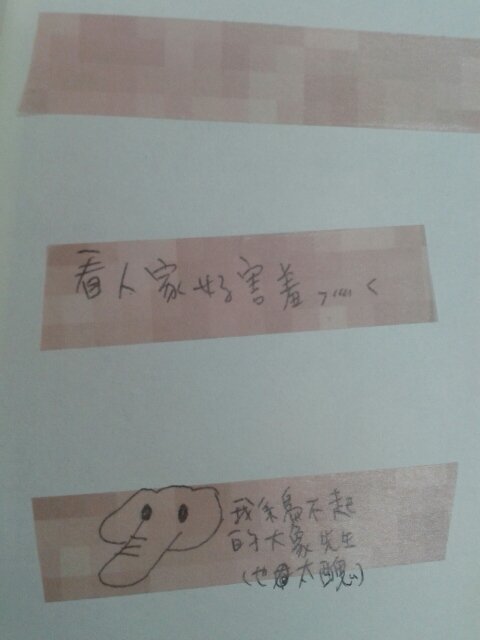 看人家好害羞 >////<
我係鳥不起
的大象先生
(也太醜)